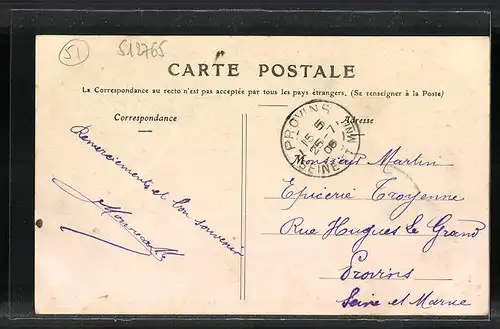 51
512765
CARTE POSTALE
La Correspondance au recto n'est pas acceptée par tous les pays étrangers. (Se renseigner à la Poste)
Correspondance
Adresse
PROVINS
SEINE-ET-MNE
Remerciements et bon souvenir
Monsieur Martin
Epicerie Troyenne
Rue Hugues le Grand
Provins
Seine et Marne